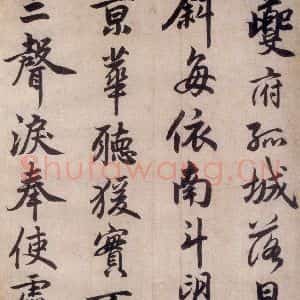 夔府孤城落日
斜每依南斗望
京華聽猨實下
三聲淚奉使虛
Shufawang.cn